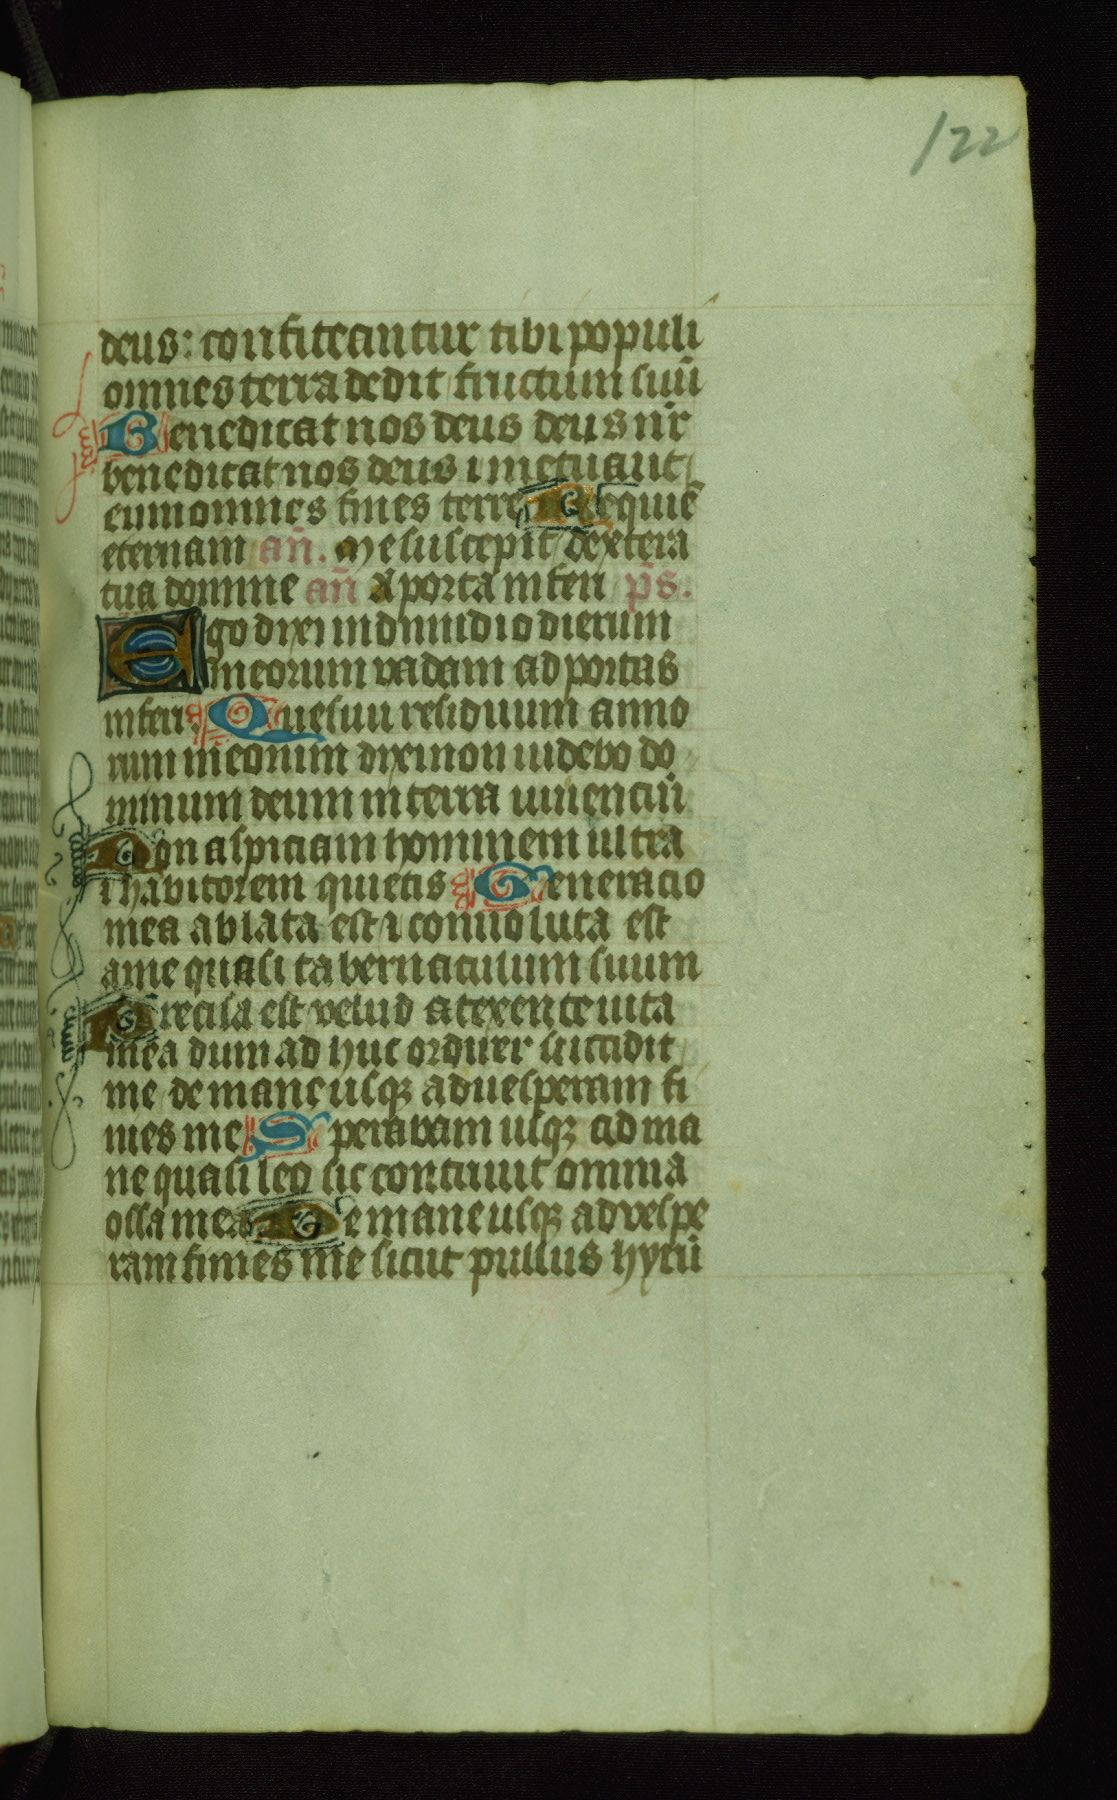 122
deus: confiteantur tibi populi
omnes terra dedit fructum suū
Benedicat nos deus deus nr̄
benedicat nos deus ⁊ metuant
eum omnes fines terre Requiē
eternam an̄. Me suscepit dextera
tua domine an̄ A porta inferi p̄s.
Ego dixi in dimidio dierum
meorum vadam ad portas
inferi Quesiui residuum anno
rum meorum dixi non uidebo do
minum deum in terra uiuenciū
Non aspiciam hominem ultra
⁊ habitorem quietis Generacio
mea ablata est ⁊ conuoluta est
a me quasi tabernaculum suum
Precisa est velud a texente uita
mea dum ad huc ordirer succidit
me de mane usqꝫ ad uesperam fi
nies me Sperabam usqꝫ ad ma
ne quasi leo sic contriuit omnia
ossa mea De mane usqꝫ ad vespe
ram finies me sicut pullus hyrū